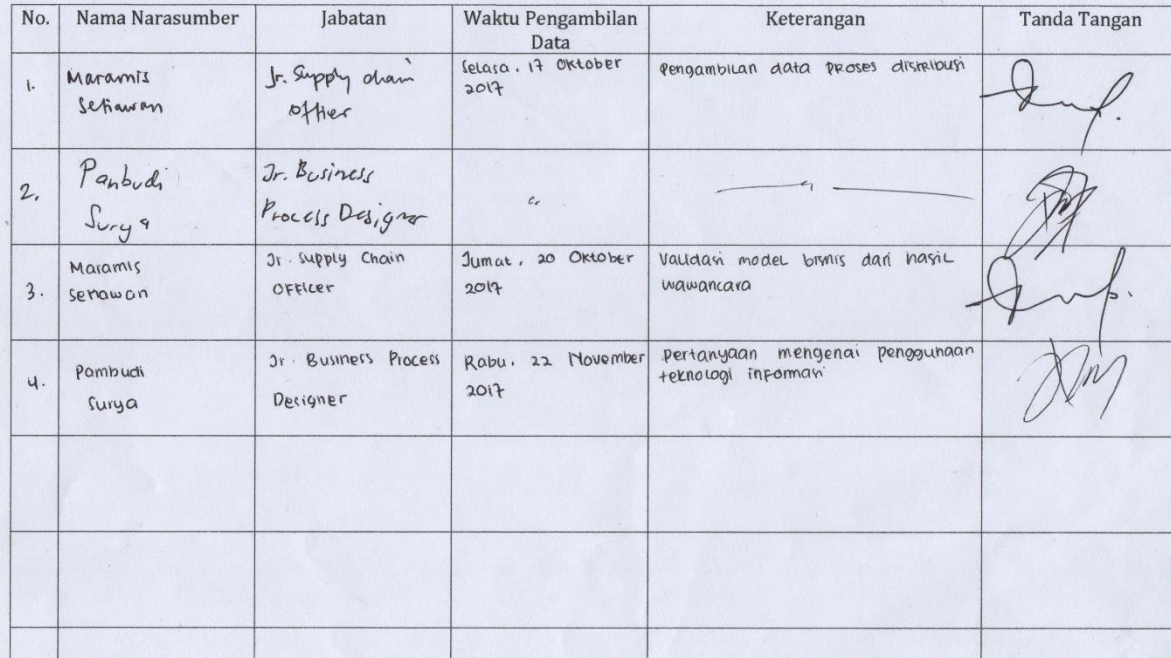 No. Nama Narasumber Jabatan Waktu Pengambilan Data Keterangan Tanda Tangan
1. Maramis Setiawan Jr. Supply chain officer Selasa, 17 Oktober 2017 Pengambilan data proses distribusi
2. Pambudi Surya Jr. Business Process Designer " — " —
3. Maramis Setiawan Jr. Supply Chain Officer Jumat, 20 Oktober 2017 Validasi model bisnis dari hasil wawancara
4. Pambudi Surya Jr. Business Process Designer Rabu, 22 November 2017 Pertanyaan mengenai penggunaan teknologi informasi